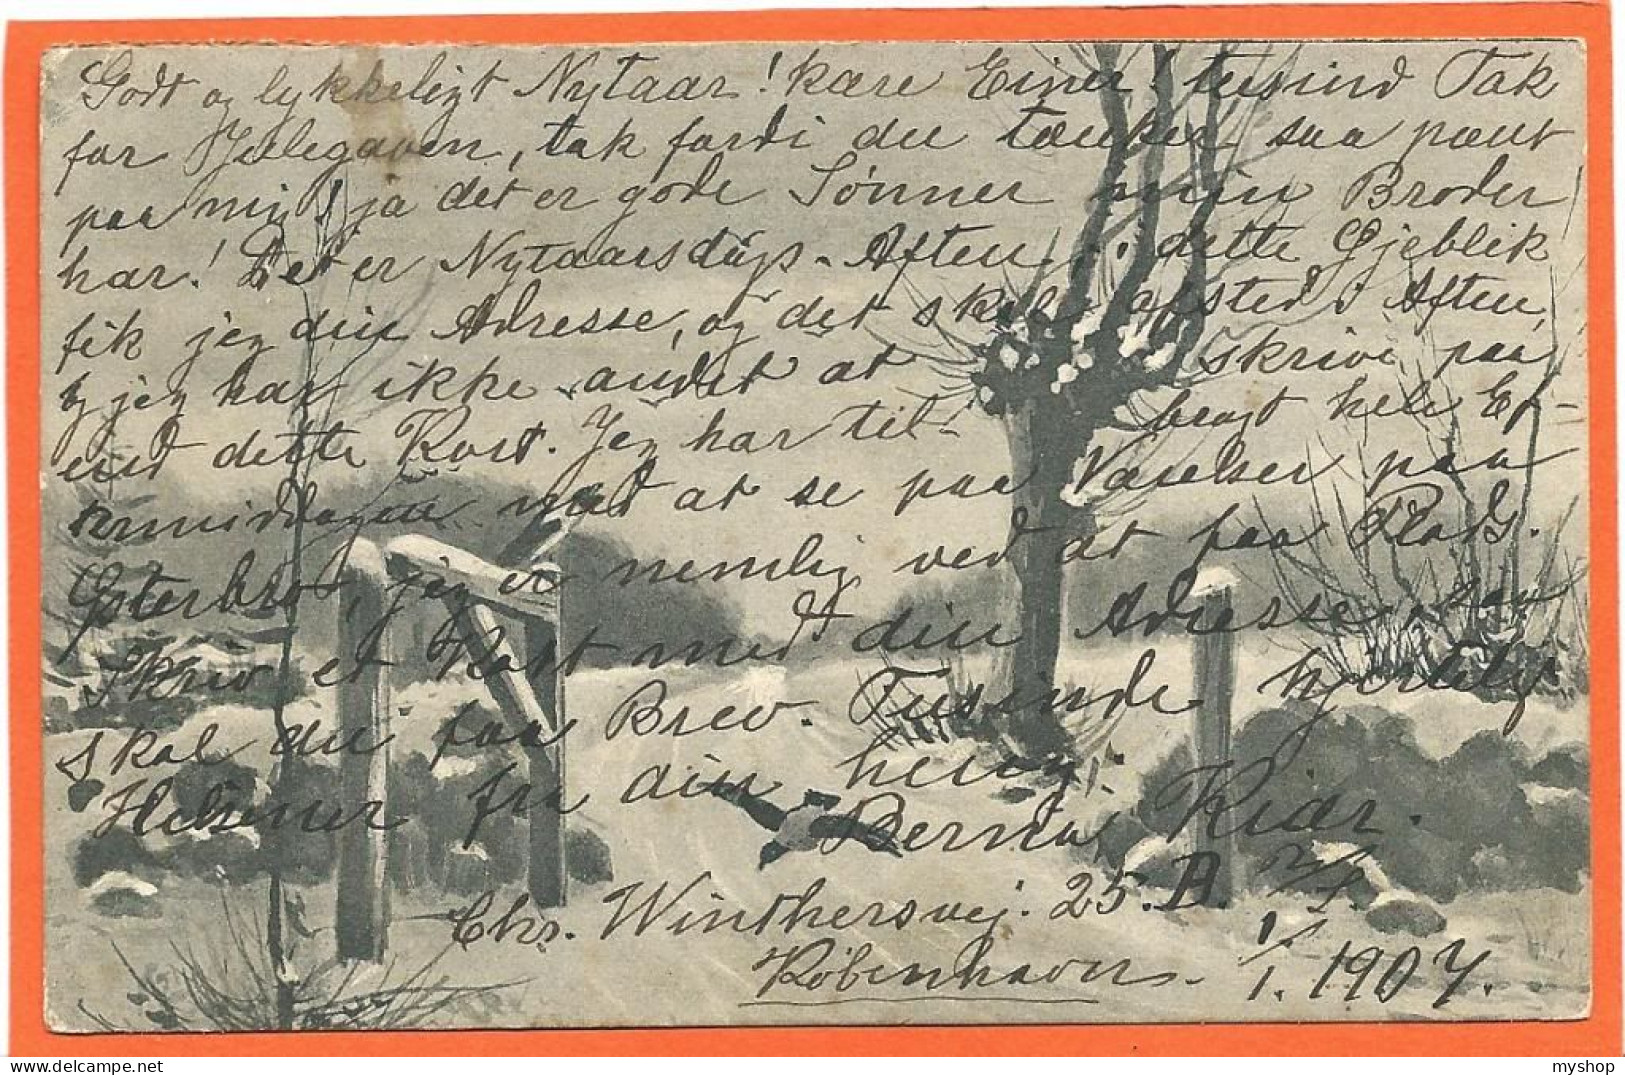 Godt og lykkeligt Nytaar! kære Ejner! tusind Tak
for Julegaven, tak fordi du tænker saa pænt
paa mig! ja det er gode Sønner min Broder
har! Det er Nytaarsdags-Aften, i dette Øjeblik
fik jeg din Adresse, og det skal afsted i Aften,
og jeg har ikke andet at skrive paa
end dette Kort. Jeg har til- bragt hele Ef-
termiddagen med at se paa Værelser paa
Østerbro, jeg er nemlig ved at faa Plads.
Skriv et Kort med din Adresse, saa
skal du faa Brev. Tusinde hjertelig
Hilsener fra din heng.
Berna Kiær.
Chr. Winthersvej. 25. A. 2/1.
København. 1/1. 1907.
myshop